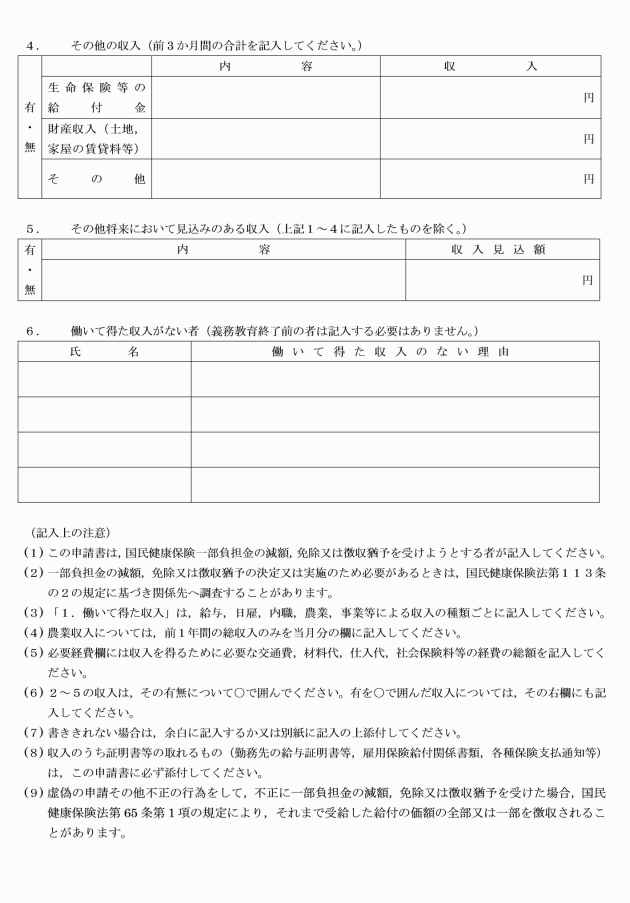 ４．　その他の収入（前３か月間の合計を記入してください。）
内　容　収　入
有・無
生命保険等の
給付金　円
財産収入（土地，
家屋の賃貸料等）　円
その他　円
５．　その他将来において見込みのある収入（上記１～４に記入したものを除く。）
有・無
内　容　収入見込額
円
６．　働いて得た収入がない者（義務教育終了前の者は記入する必要はありません。）
氏　名　働いて得た収入のない理由
（記入上の注意）
(１) この申請書は，国民健康保険一部負担金の減額，免除又は徴収猶予を受けようとする者が記入してください。
(２) 一部負担金の減額，免除又は徴収猶予の決定又は実施のため必要があるときは，国民健康保険法第１１３条
の２の規定に基づき関係先へ調査することがあります。
(３) 「１．働いて得た収入」は，給与，日雇，内職，農業，事業等による収入の種類ごとに記入してください。
(４) 農業収入については，前１年間の総収入のみを当月分の欄に記入してください。
(５) 必要経費欄には収入を得るために必要な交通費，材料代，仕入代，社会保険料等の経費の総額を記入してく
ださい。
(６) ２～５の収入は，その有無について○で囲んでください。有を○で囲んだ収入については，その右欄にも記
入してください。
(７) 書ききれない場合は，余白に記入するか又は別紙に記入の上添付してください。
(８) 収入のうち証明書等の取れるもの（勤務先の給与証明書等，雇用保険給付関係書類，各種保険支払通知等）
は，この申請書に必ず添付してください。
(９) 虚偽の申請その他不正の行為をして，不正に一部負担金の減額，免除又は徴収猶予を受けた場合，国民
健康保険法第 65 条第１項の規定により，それまで受給した給付の価額の全部又は一部を徴収されるこ
とがあります。